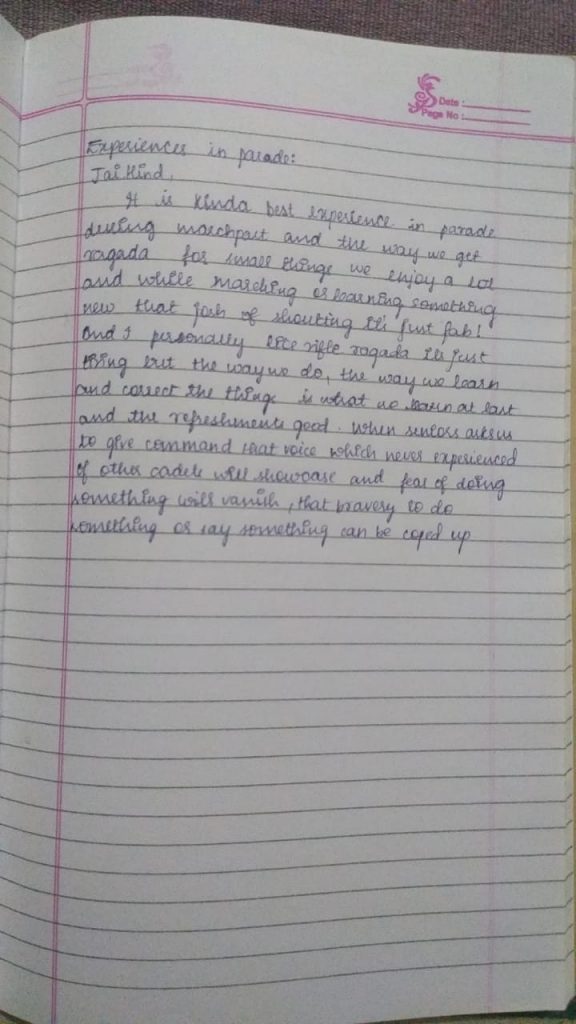 Date :
Page No :
Experiences in parade:
Jai Hind,
It is kinda best experience in parade
during marchpast and the way we get
ragada for small things we enjoy a lot
and while marching or learning something
new that josh of shouting it's just fab!
And I personally like rifle ragada it's just
thing but the way we do, the way we learn
and correct the things is what we learn at last
and the refreshments good. When seniors asks us
to give command that voice which never experienced
of other cadets will showcase and fear of doing
something will vanish, that bravery to do
something or say something can be coped up